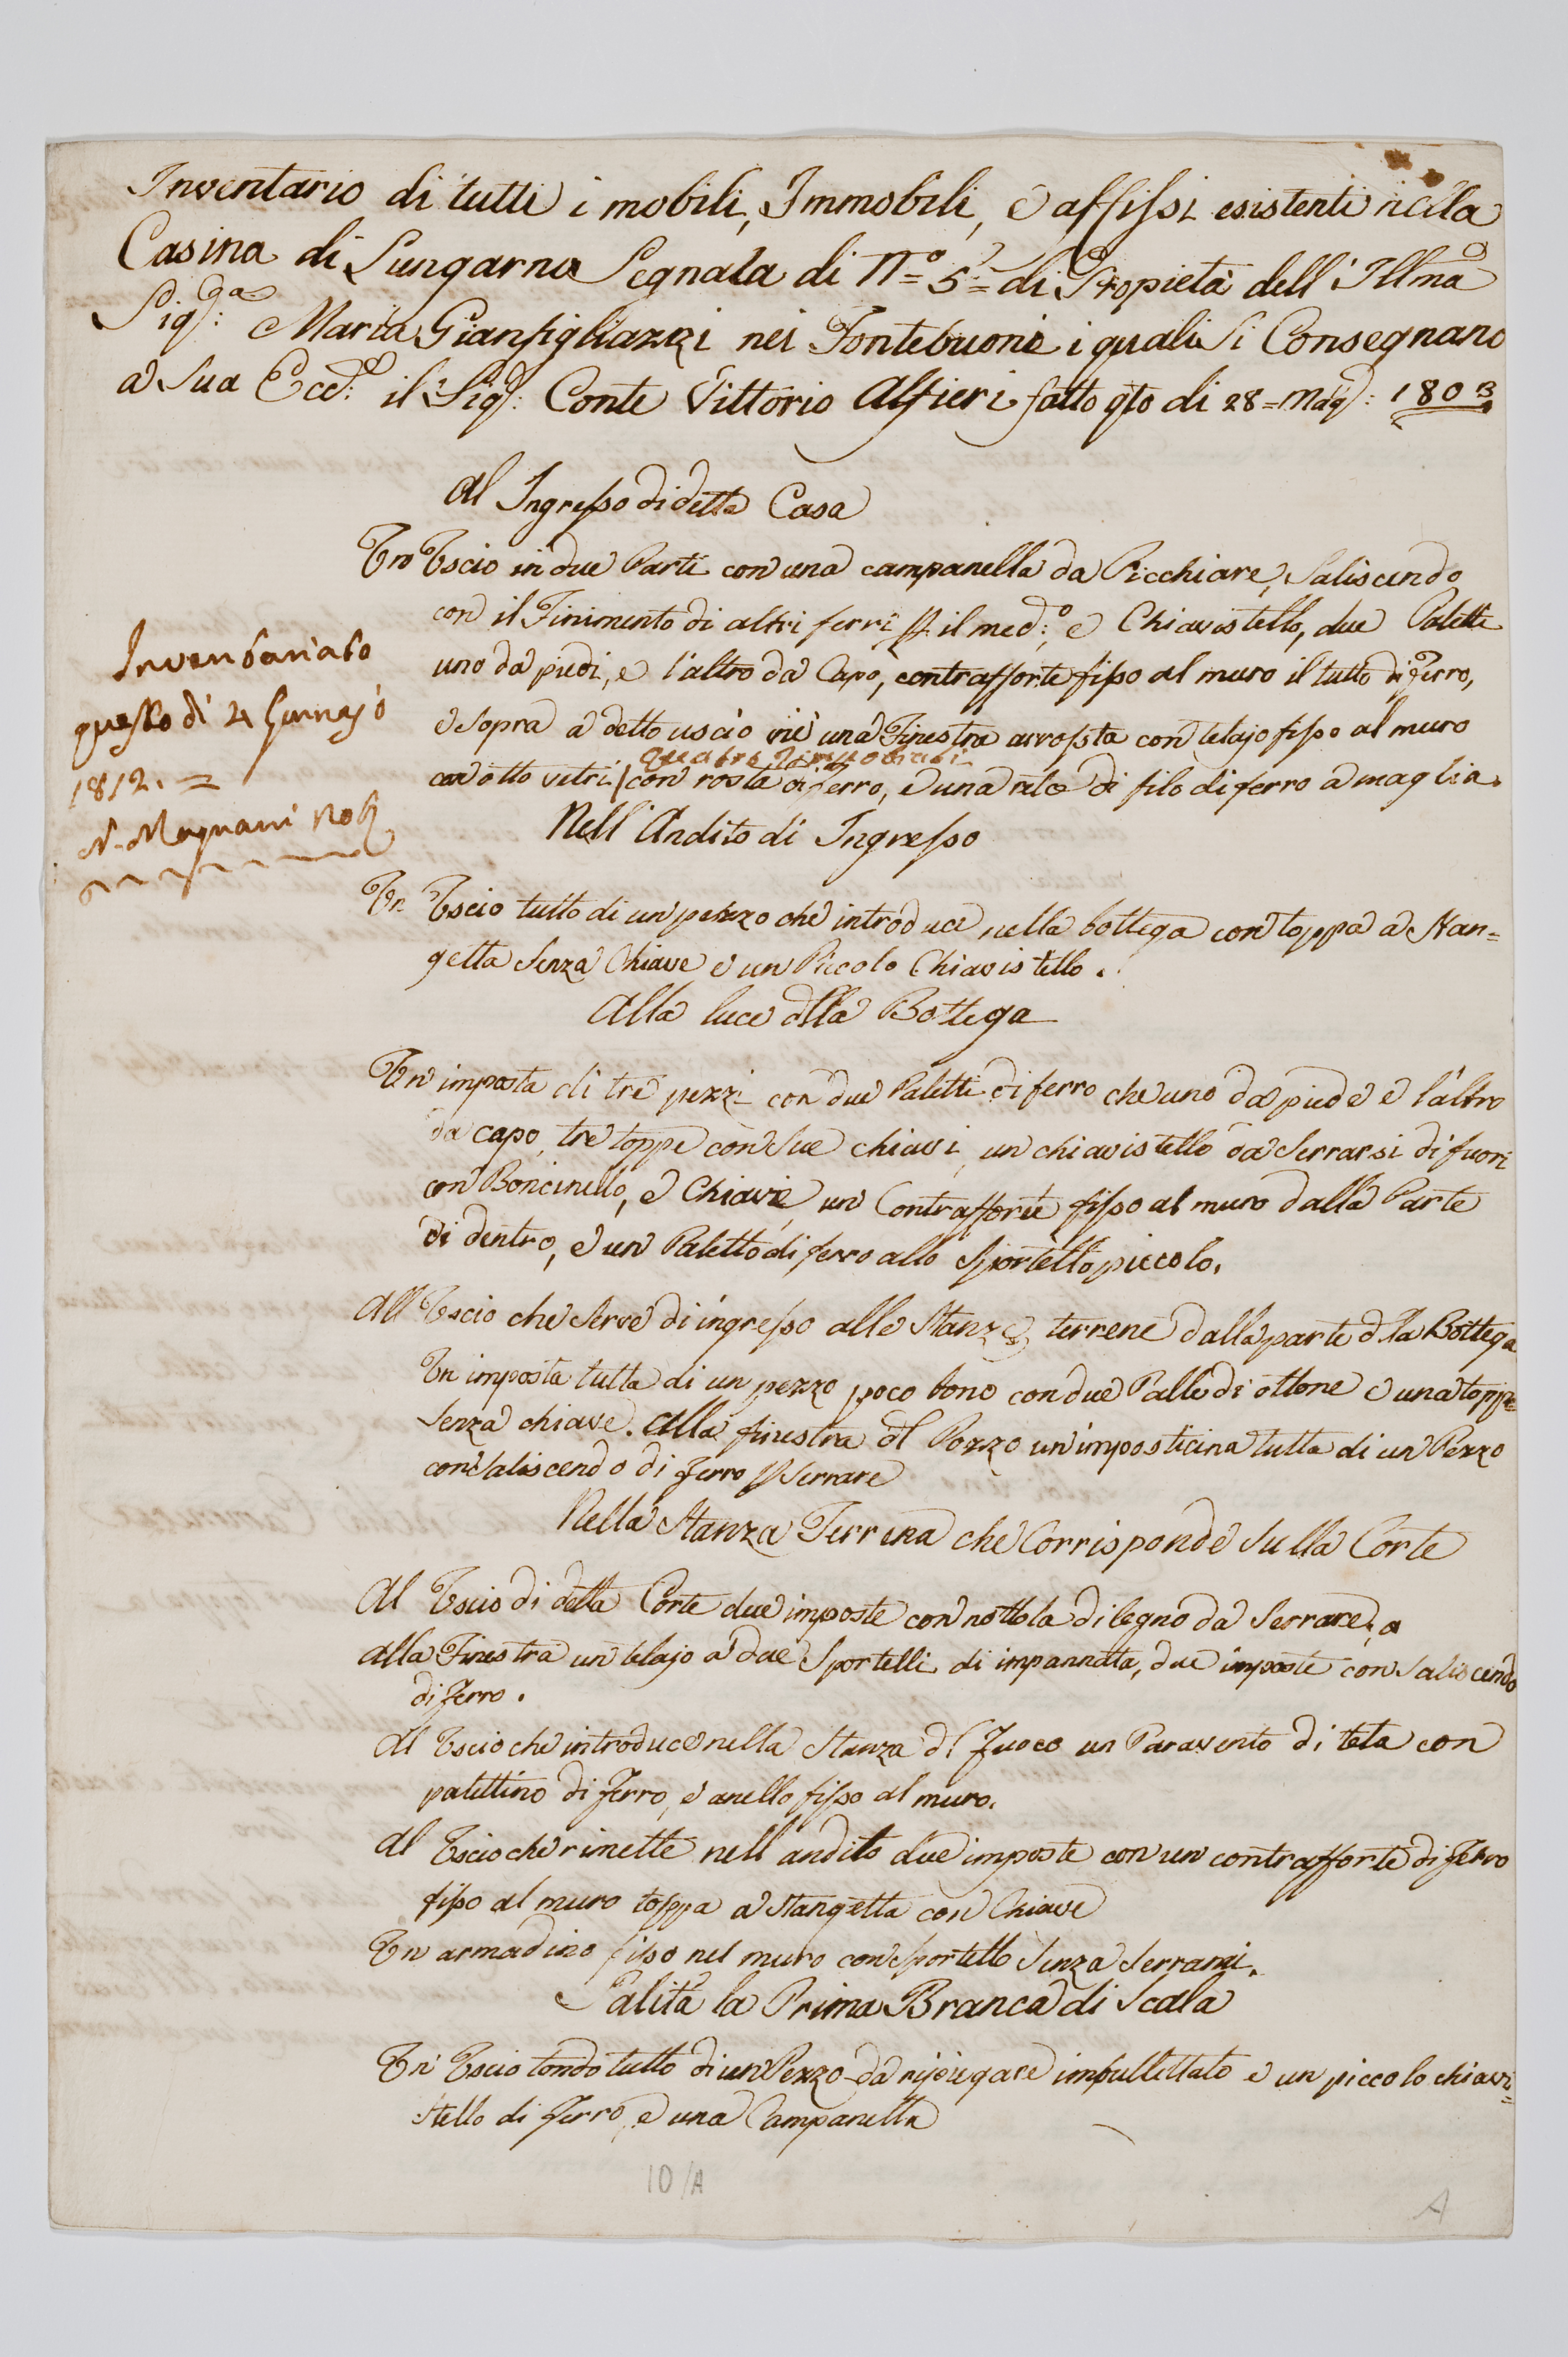 Inventario di tutti i mobili, Immobili, e affissi esistenti nella
Casina di Lungarno Segnata di N.º 5.= di Propietà dell' Illma
Sig.ra Maria Gianfigliazzi nei Fontebuoni i quali Si Consegnano
a Sua Ecc.: il Sig.: Conte Vittorio Alfieri fatto qto di 28= Mag: 1803
Al Ingresso di detta Casa
Un Uscio in due Parti con una campanella da Picchiare, Saliscendo
con il Finimento di altri ferri p il med:o e Chiavistello, due Paletti
uno da piedi, e l'altro da Capo, contrafforte fisso al muro il tutto di Ferro,
e Sopra a detto uscio vi è una Finestra arrosta con telajo fisso al muro
quatro
con otto vetri / con rosta di Ferro, e una rete di filo di ferro a maglia.
Nell' Andito di Ingresso
Un Uscio tutto di un pezzo che introduce nella bottega con toppa a Stan=
getta Senza Chiave e un Piccolo Chiavistello.
Alla luce dlla Bottega
Un' imposta di tre pezzi con due Paletti di ferro che uno da piede e l'altro
da capo, tre toppe con Sue chiavi, un chiavistello da Serrarsi di fuori
con Boncinello, e Chiavi, un Contrafforte fisso al muro dalla Parte
di dentro, e un Paletto di ferro allo Sportello piccolo.
All Uscio che Serve di ingresso alle Stanze terrene dalla parte dlla Bottega
Un imposta tutta di un pezzo poco bono con due Palle di ottone e una toppa
Senza chiave. Alla finestra dl Pozzo un'imposticina tutta di un Pezzo
con Saliscendo di Ferro p Serrare
Nella Stanza Terrena che Corrisponde Sulla Corte
Al Uscio di detta Corte due imposte con nottola di legno da Serrare,
alla Finestra un telajo a due Sportelli di impannata, due imposte con Saliscendo
di Ferro.
Al Uscio che introduce nella Stanza dl Fuoco un Paravento di tela con
palettino di Ferro, e anello fisso al muro.
Al Uscio che rimette nell andito due imposte con un contrafforte di Ferro
fisso al muro toppa a Stangetta con Chiave
Un armadino fisso nel muro con Sportello Senza Serrami.
Salita la Prima Branca di Scala
Un Uscio tondo tutto di un Pezzo da ripiegare imbullettato e un piccolo chiavi=
stello di Ferro, e una Campanella
Inventariato
questo dì 4 Gennajo
1812. =
N. Magnani
10/A
A